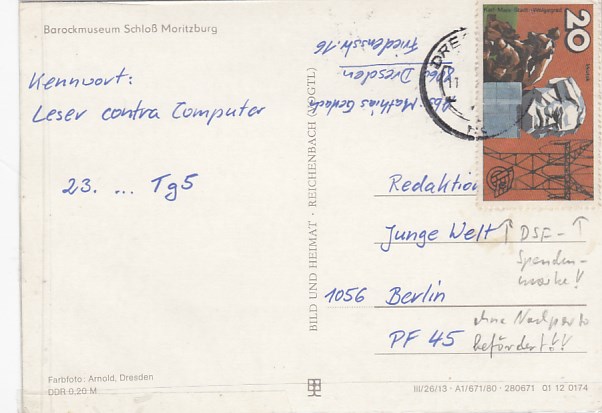 Barockmuseum Schloß Moritzburg
Kennwort:
Leser contra Computer
23. ... Tg5
Farbfoto: Arnold, Dresden
DDR 0,20 M
BILD UND HEIMAT · REICHENBACH (VOGTL)
Abs. Mathias Gerlach
806 Dresden
Friedensstr. 16
DRE
11
20
Redaktion
Junge Welt
1056 Berlin
PF 45
↑ DSF- ↑
Spenden-
marke!
ohne Nachporto
befördert!!!
III/26/13 · A1/671/80 · 280671 01 12 0174